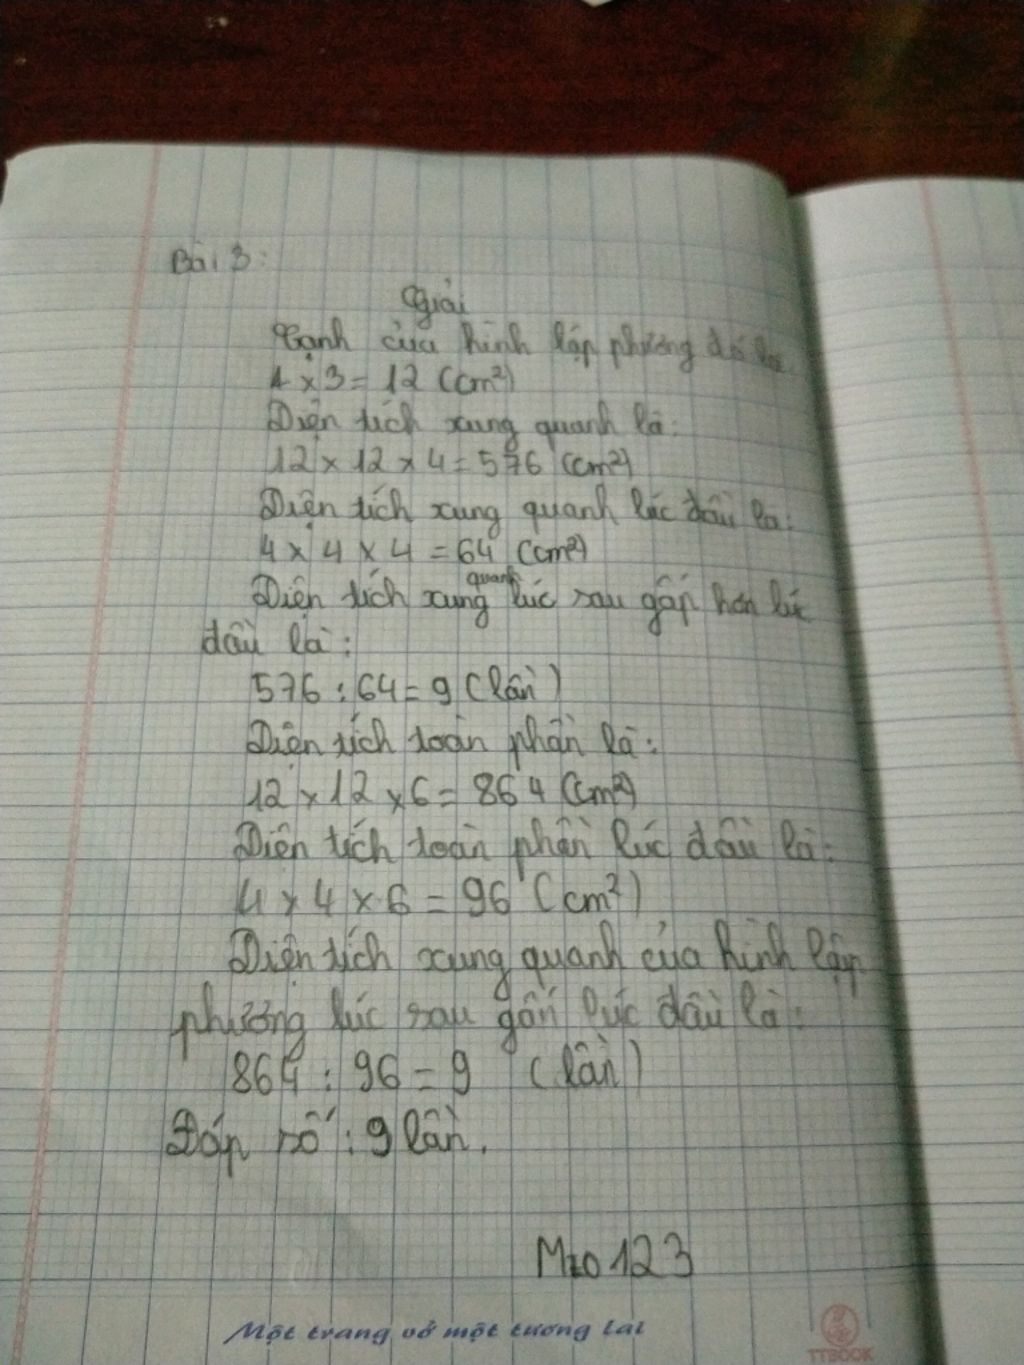 Bài 3:
Giải
Cạnh của hình lập phương đó là
4 x 3 = 12 (cm²)
Diện tích xung quanh là:
12 x 12 x 4 = 576 (cm²)
Diện tích xung quanh lúc đầu là:
4 x 4 x 4 = 64 (cm²)
Diện tích xung quanh lúc sau gấp hơn lúc
đầu là:
576 : 64 = 9 (lần)
Diện tích toàn phần là:
12 x 12 x 6 = 864 (cm²)
Diện tích toàn phần lúc đầu là:
4 x 4 x 6 = 96 (cm²)
Diện tích xung quanh của hình lập
phương lúc sau gấn lúc đầu là:
864 : 96 = 9 (lần)
Đáp số : 9 lần.
Mzo123
Một trang vở một tương lai
TTBOOK